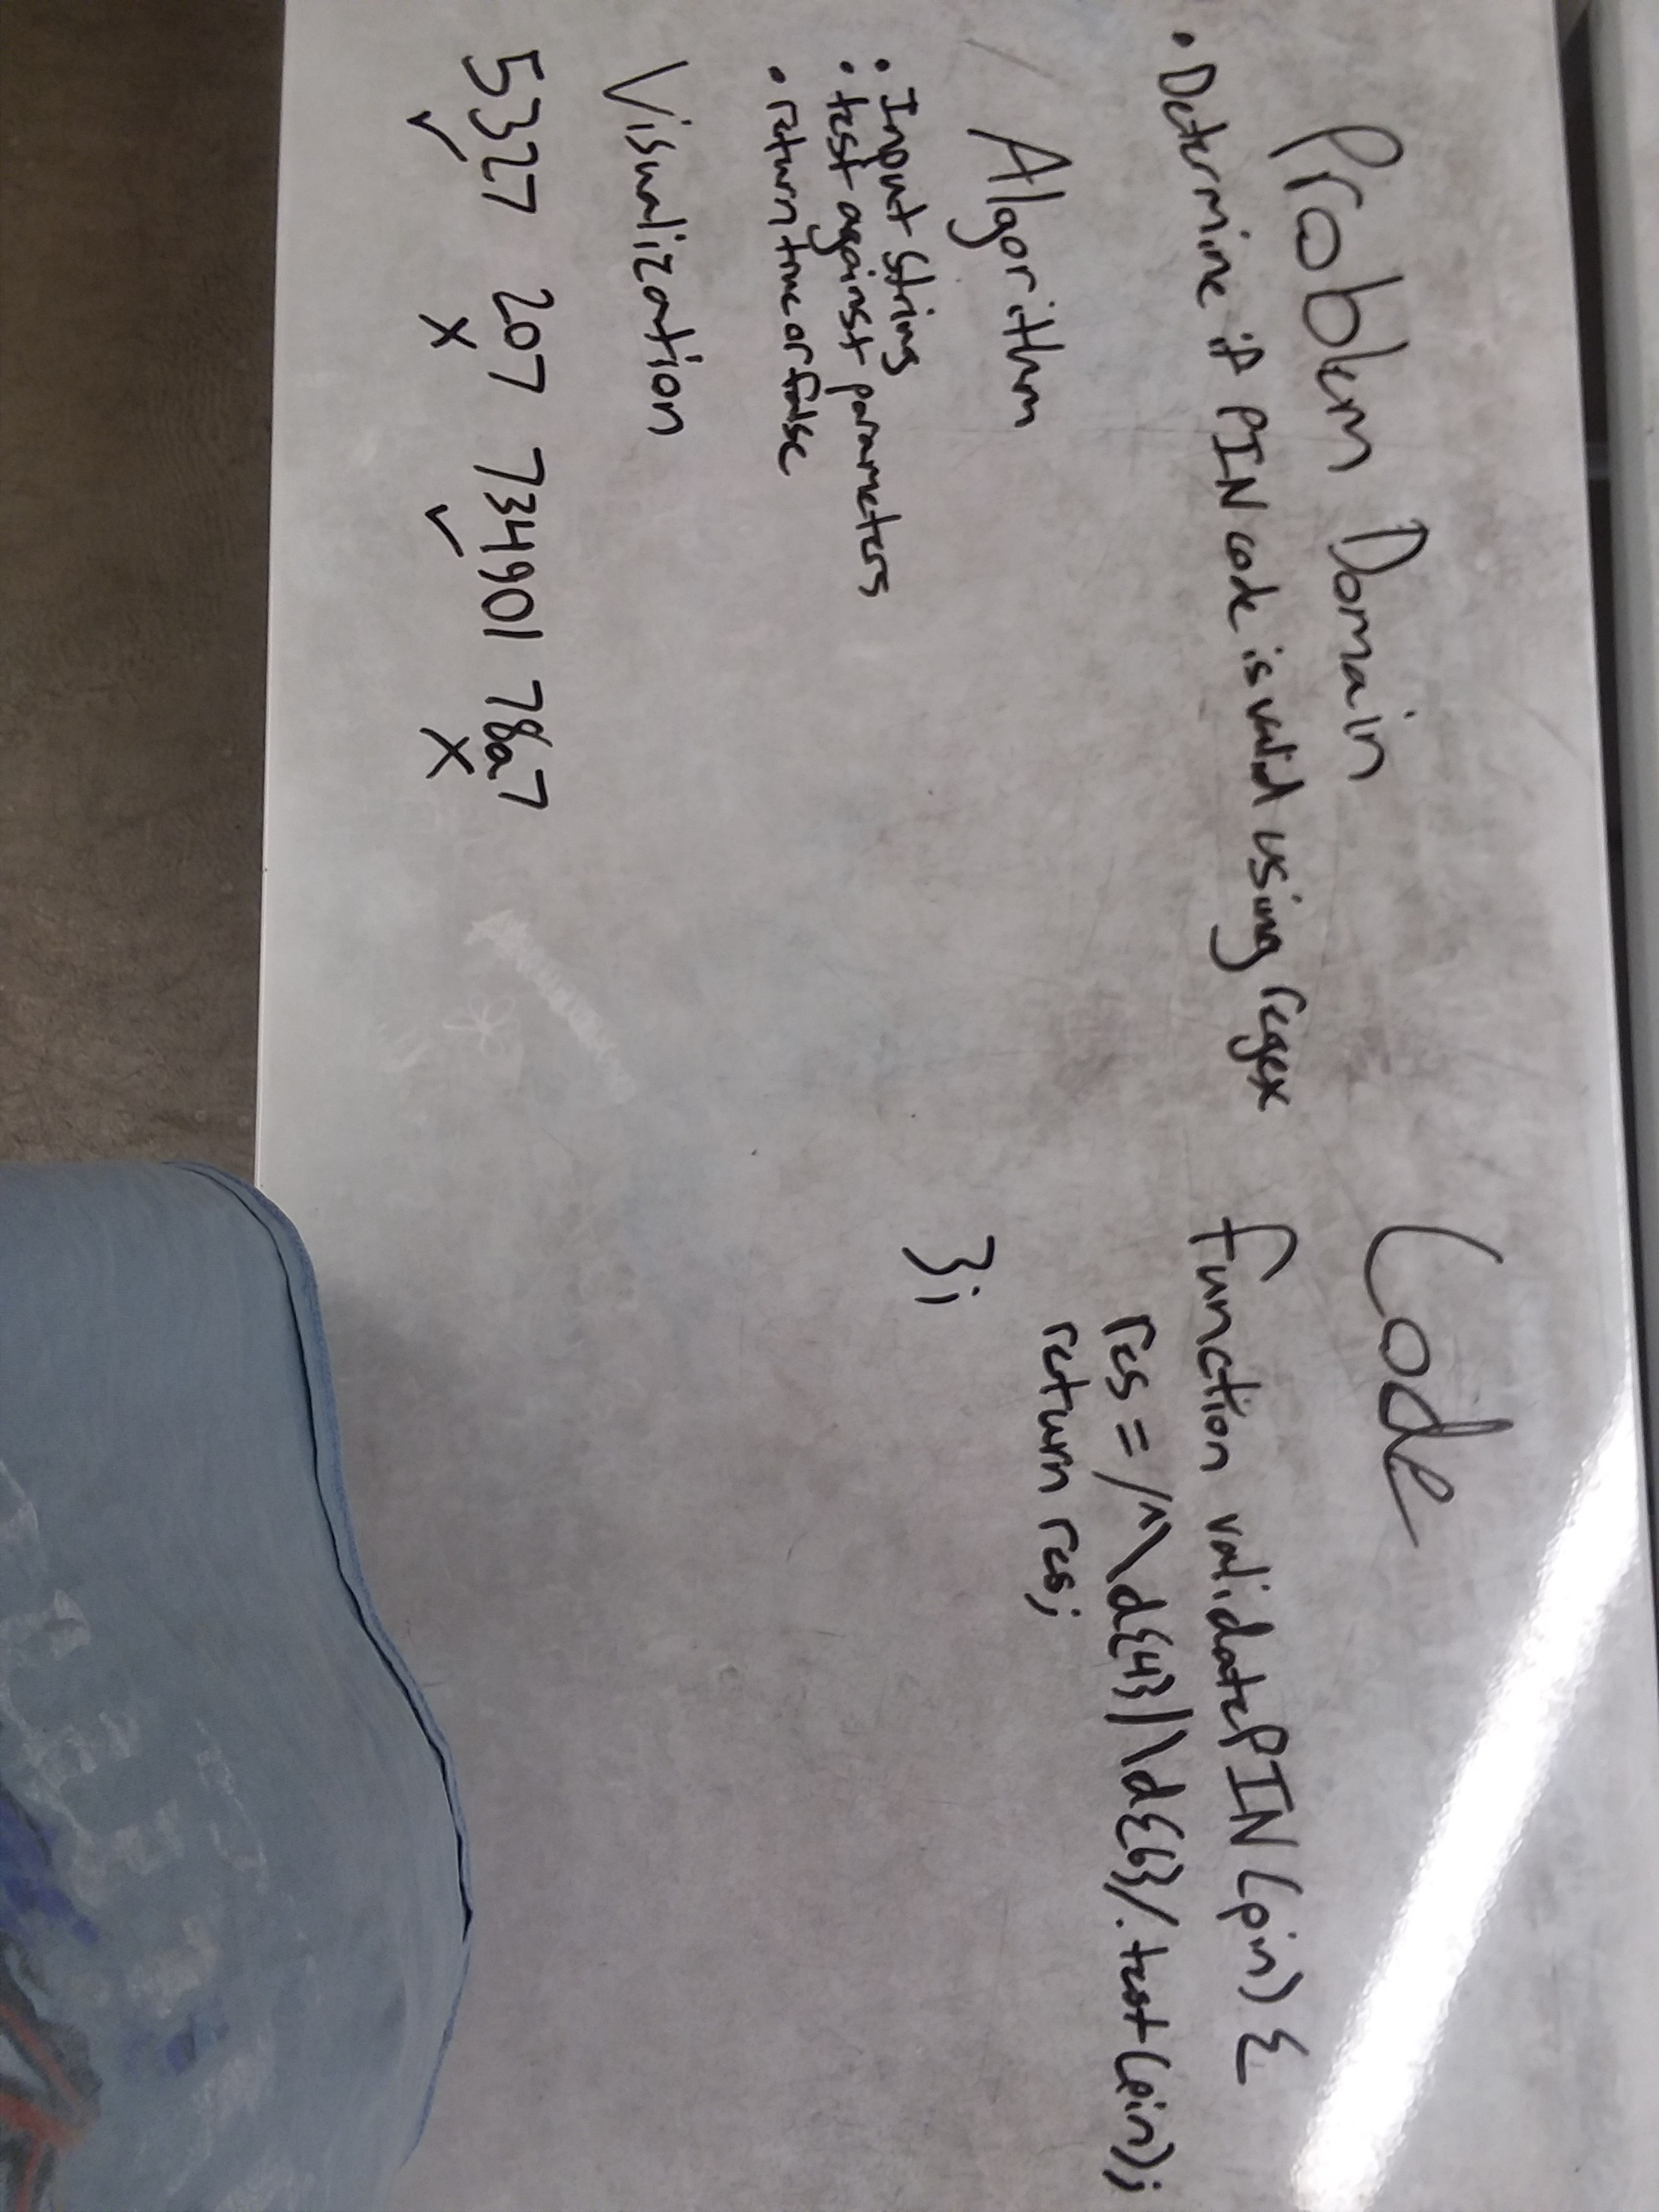 Problem Domain
• Determine if PIN code is valid using regex
Algorithm
• Input String
• test against parameters
• return true or false
Visualization
5327 207 734901 78a7
✓ X ✓ X
Code
function validatePIN (pin) {
res = /^\d{4}|\d{6}/.test(pin);
return res;
};